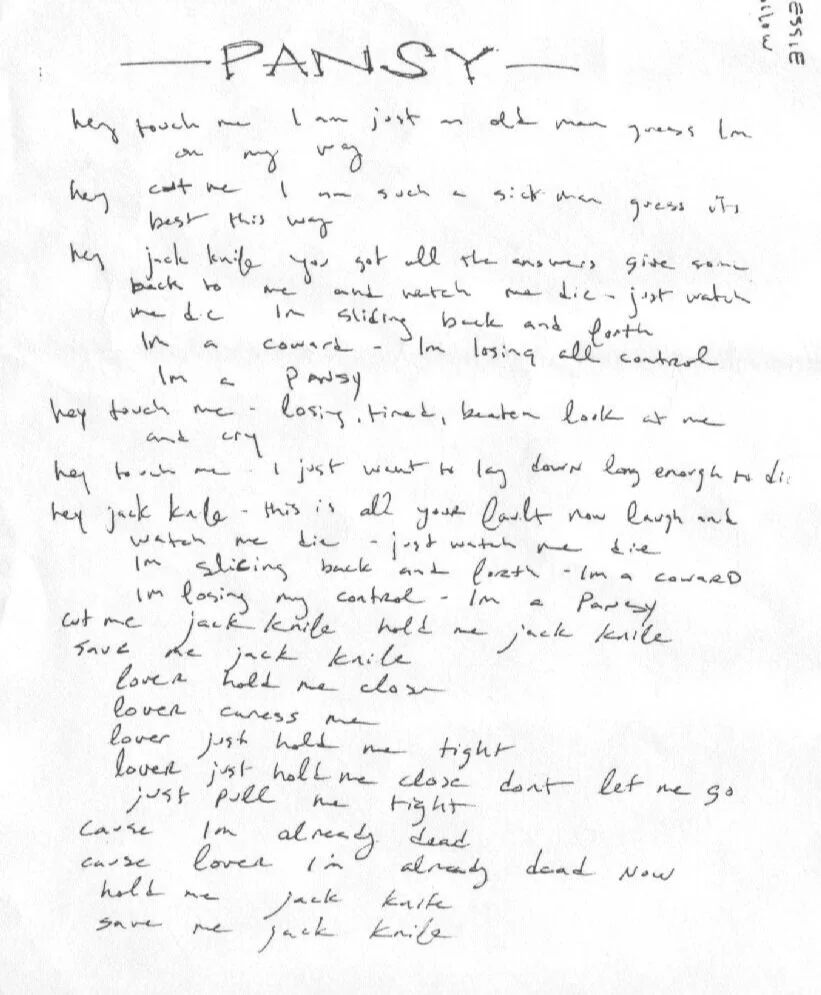 ESSIE
PANSY
hey touch me I am just an old man guess Im
on my way
hey cut me I am such a sick man guess its
best this way
hey jack knife you got all the answers give some
back to me and watch me die - just watch
me die Im sliding back and forth
Im a coward - Im losing all control
Im a PANSY
hey touch me - losing, tired, beaten look at me
and cry
hey touch me - I just want to lay down long enough to di
hey jack knife - this is all your fault now laugh and
watch me die - just watch me die
Im slicing back and forth - Im a cowarD
Im losing my control - Im a PANSY
cut me jack knife hold me jack knife
save me jack knife
lover hold me close
lover caress me
lover just hold me tight
lover just hold me close dont let me go
just pull me tight
cause Im already dead
cause lover i'm already dead now
hold me jack knife
save me jack knife